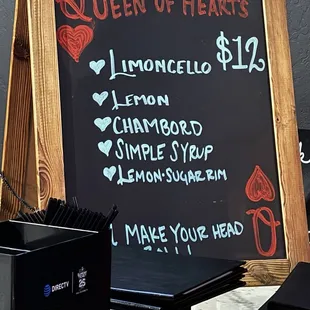 QUEEN OF HEARTS
LIMONCELLO $12
LEMON
CHAMBORD
SIMPLE SYRUP
LEMON-SUGAR RIM
MAKE YOUR HEAD
Q
DIRECTV
25